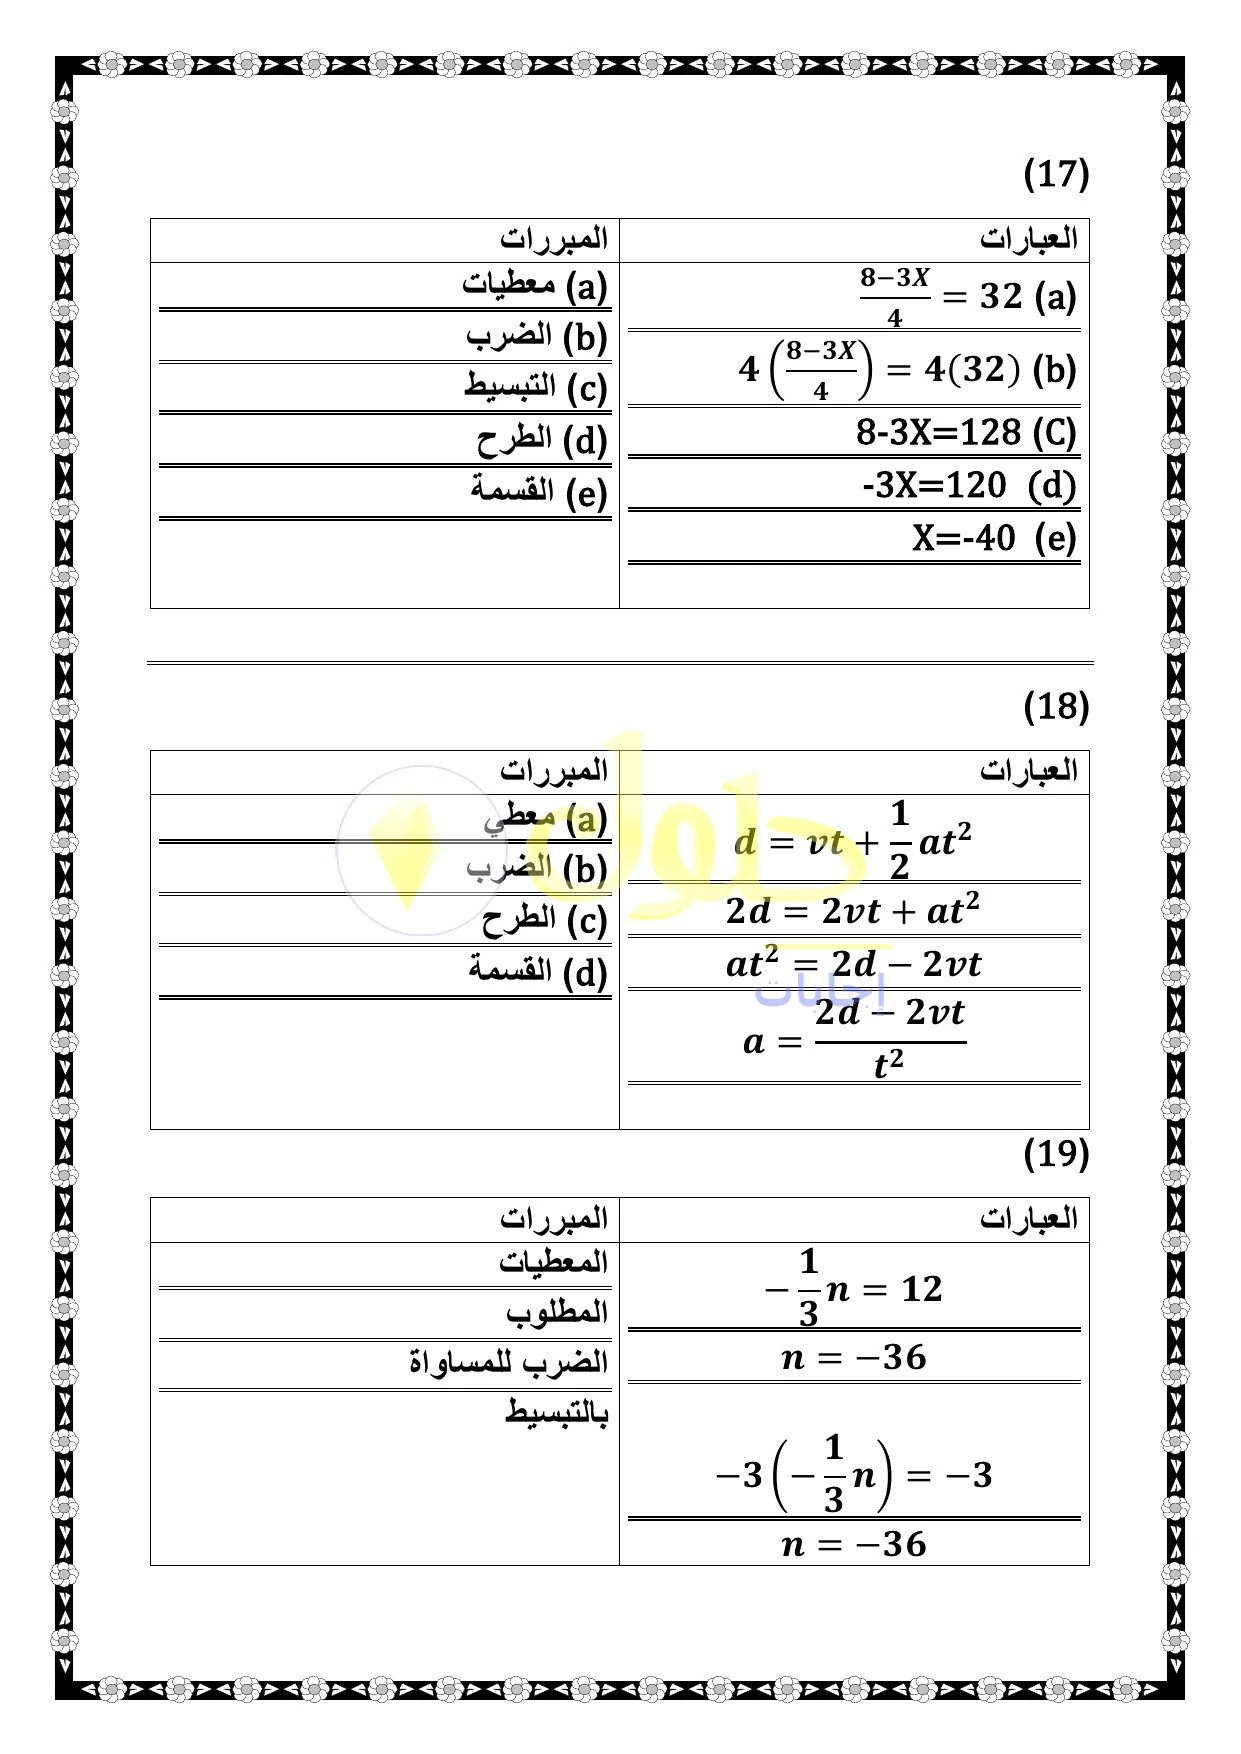 (17)
العبارات
(a) \frac{8-3X}{4} = 32
(b) 4(\frac{8-3X}{4}) = 4(32)
(C) 8-3X=128
(d) -3X=120
(e) X=-40
المبررات
(a) معطيات
(b) الضرب
(c) التبسيط
(d) الطرح
(e) القسمة
(18)
العبارات
d = vt + \frac{1}{2} at²
2d = 2vt + at²
at² = 2d − 2vt
a = \frac{2d − 2vt}{t²}
المبررات
(a) معطي
(b) الضرب
(c) الطرح
(d) القسمة
حلول
إجابات
(19)
العبارات
−\frac{1}{3} n = 12
n = −36
−3(−\frac{1}{3} n) = −3
n = −36
المبررات
المعطيات
المطلوب
الضرب للمساواة
بالتبسيط